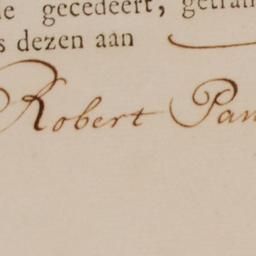 le gecedeert, getran
s dezen aan
Robert Pan